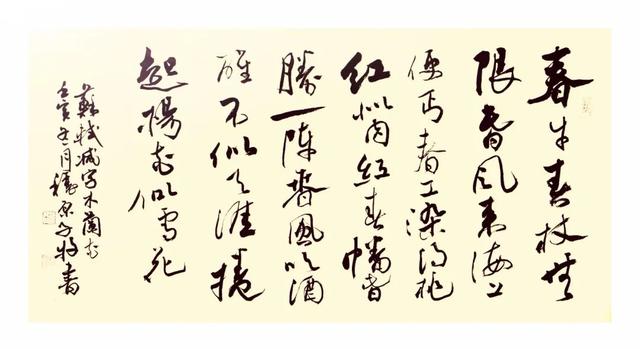 春牛春杖無
限春风来海上
便丐春工染得桃
红似肉红春幡春
勝一陣春風吹酒
醒不似天涯捲
起楊花似雪花
蘇軾减字木蘭花
壬寅月書